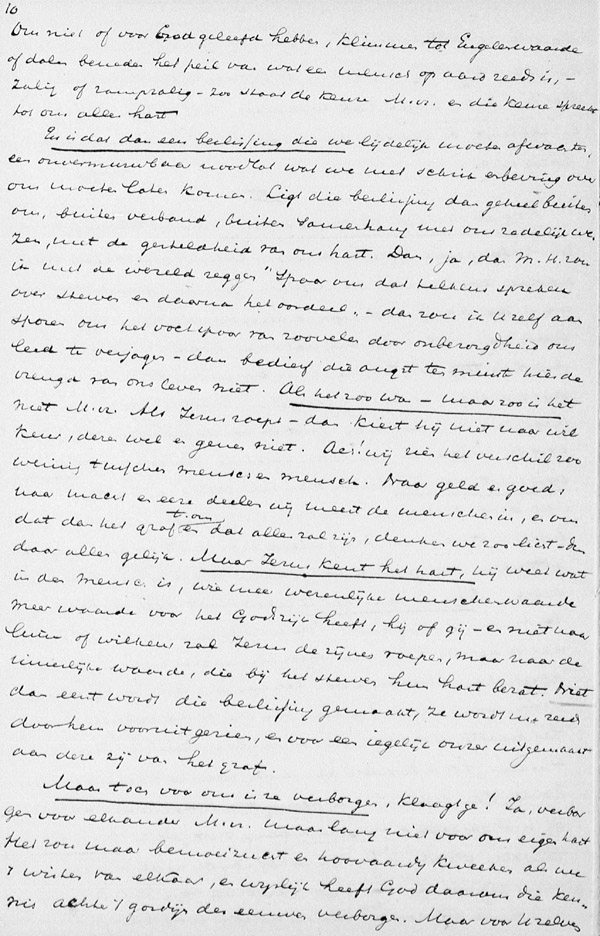 10
Om niet of voor God geleefd hebben, klimmen tot Engelenwaarde
of dalen beneden het peil van wat een mensch op aard reeds is, –
zalig of rampzalig – zoo staat de keuze M.vr. en die keuze spreekt
tot ons aller hart
En is dat dan een beslissing die we lijdelijk moeten afwachten,
een onvermurwbaar noodlot wat we met schrik en beving over
ons moeten laten komen. Ligt die beslissing dan geheel buiten
ons, buiten verband, buiten samenhang met ons zedelijk we-
zen, met de gesteldheid van ons hart. Dan, ja, dan M.H. zou
ik met de wereld zeggen "Spaar ons dat telkens spreken
over sterven en daarna het oordeel. – dan zou ik U zelf aan
sporen om het voetspoor van zoovelen door onbezorgdheid ons
leed te verjagen – dan bedierf die angst ten minste hier de
vreugd van ons leven niet. Als het zoo was – maar zoo is het
niet M.vr. Als Jezus roept – dan kiest hij niet naar wil
keur, dezen wel en genen niet. Ach! wij zien het verschil zoo
weinig tusschen mensch en mensch. Naar geld en goed,
naar macht en eere deelen wij meest de menschen in, en om
dat dan het graf t. om dat alles zal zijn, denken we zoo licht – In
daar alles gelijk. Maar Jezus kent het hart, hij weet wat
in den mensch is, wie meer werenlijke menschenwaarde
meer waarde voor het Godsrijk heeft, hij of gij – en niet naar
luim of willekeur zal Jezus de zijnen roepen, maar naar de
innerlijke waarde, die bij het sterven hun hart bezat. Niet
dan eerst wordt die beslissing gemaakt, ze wordt nu reeds
door hem vooruitgezien, en voor een iegelijk onzer uitgemaakt
aan deze zij van het graf.
Maar toch voor ons is ze verborgen, klaagt ge! Ja, verbor
gen voor elkander M.vr. maar lang niet voor ons eigen hart
Het zou maar bemoeizucht en hoovaardij kweeken als we
't wisten van elkaar, en wijslijk heeft God daarom die ken-
nis achter 't gordijn der eeuwen verborgen. Maar voor U zelven